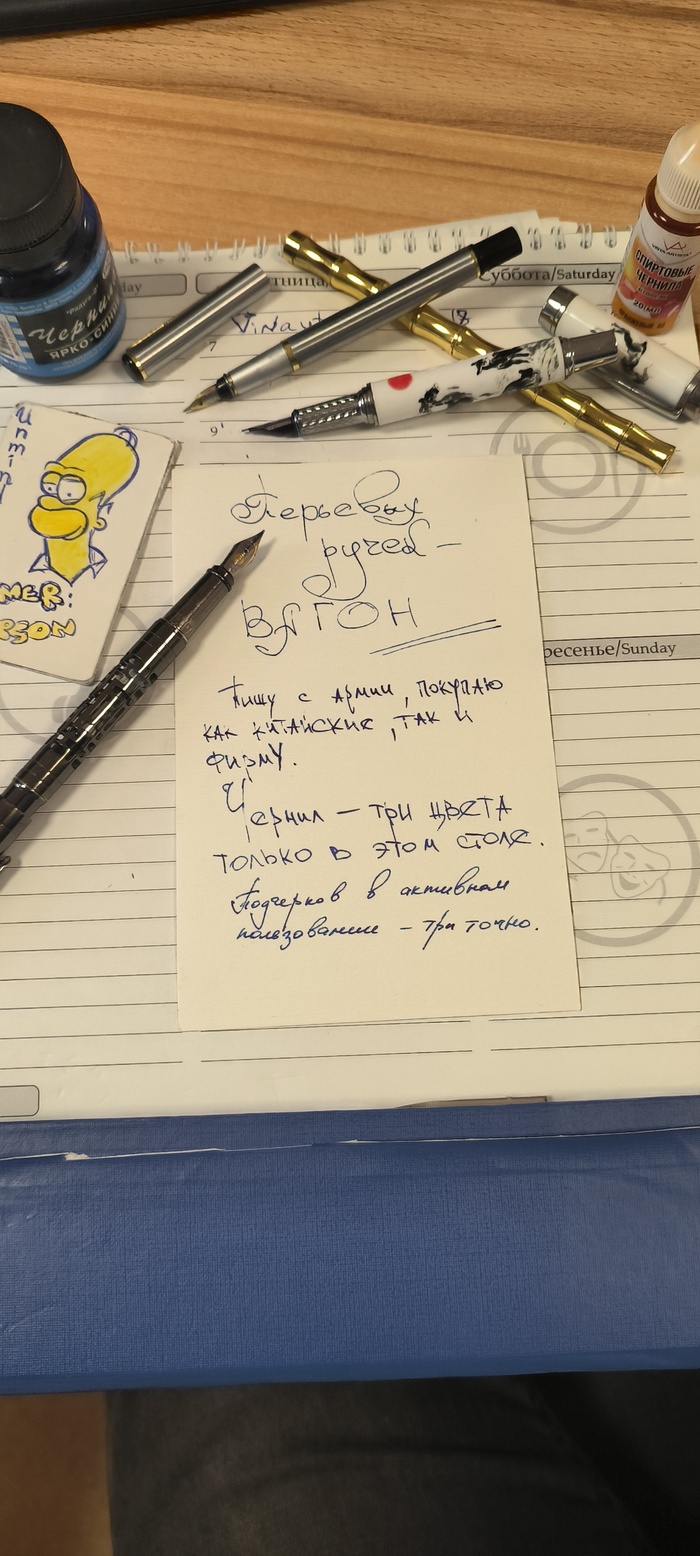 Чернила
ЯРКО-СИН
day
тница/
Суббота/Saturday
СПИРТОВЫЕ
ЧЕРНИЛА
20 МЛ
7
18
9
MER:
PSON
Перьевых
ручек —
ВАГОН
ресенье/Sunday
Пишу с армии, покупаю
как китайские, так и
фирму.
Чернил — три цвета
только в этом столе.
Подчерков в активном
пользовании — три точно.